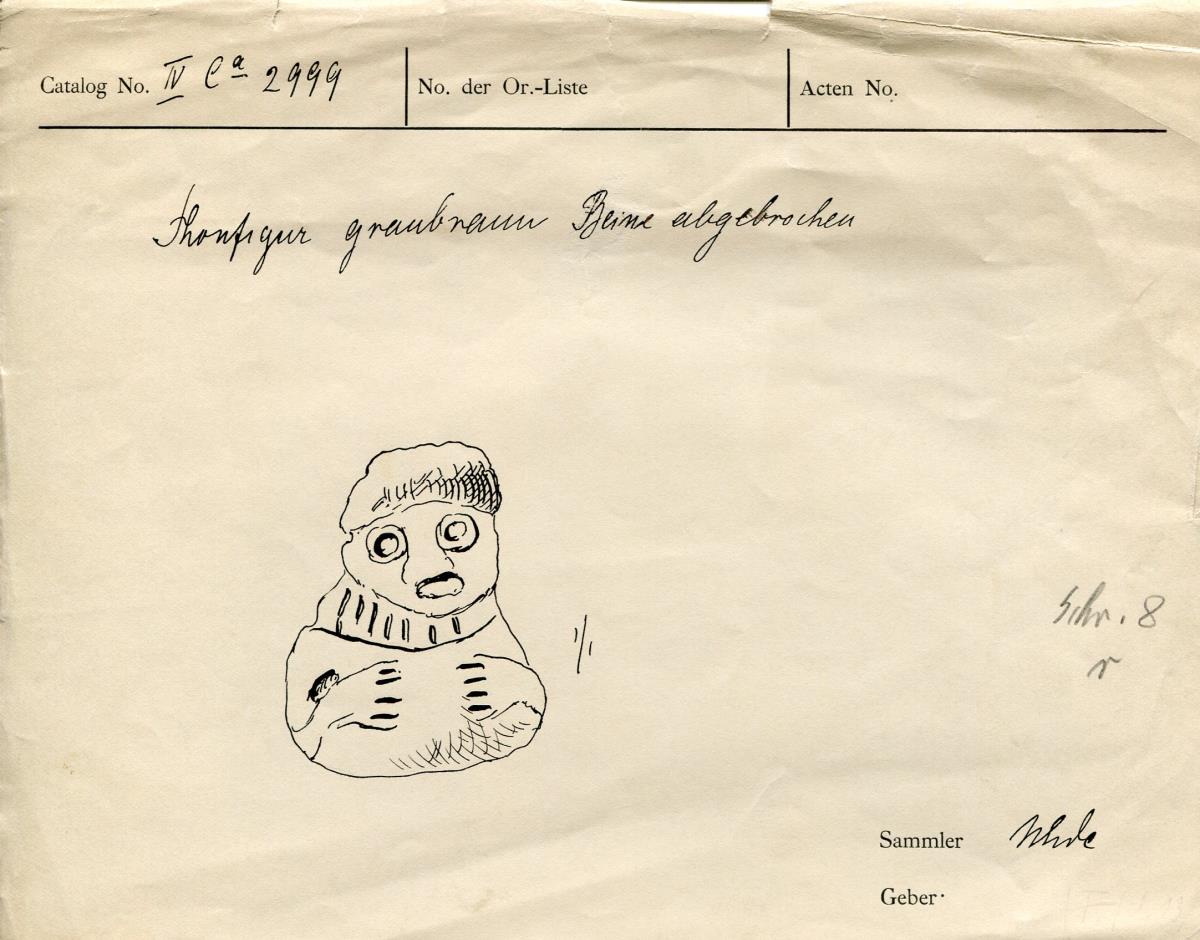 Catalog No. IV Ca 2999 No. der Or.-Liste Acten No.
Thonfigur graubraun Beine abgebrochen
1/1
Schr. 8
r
Sammler Uhde
Geber